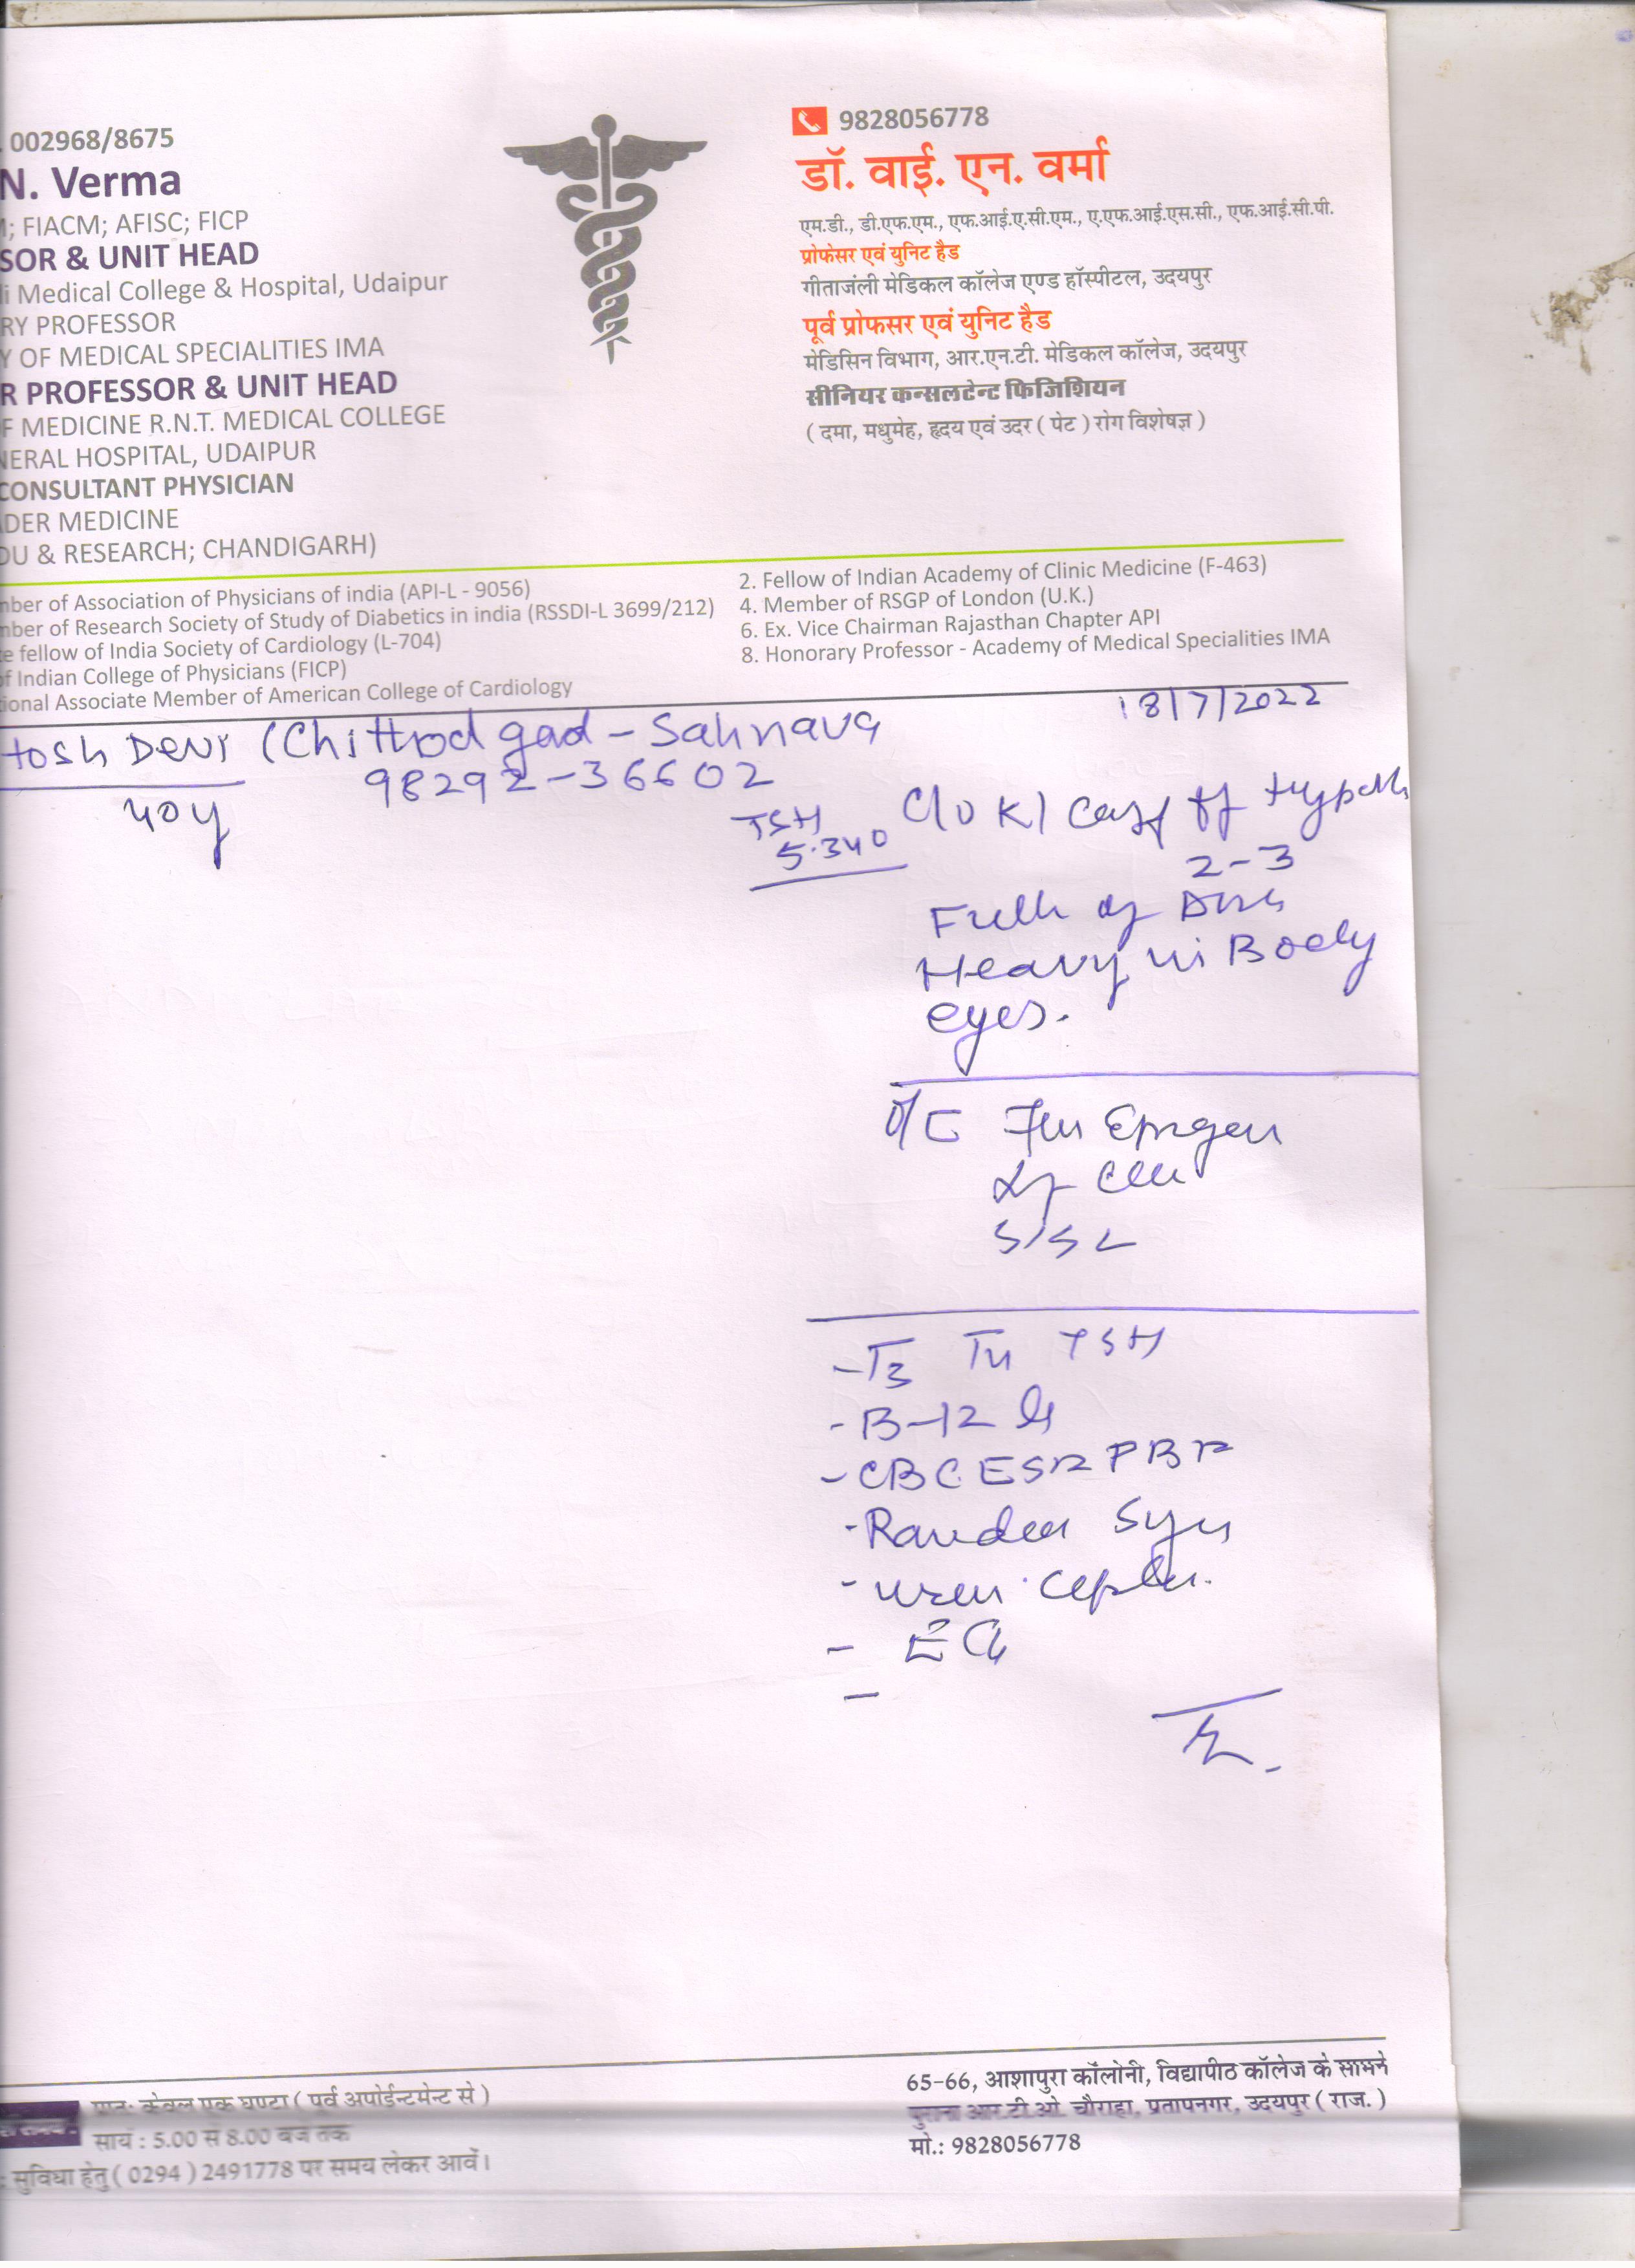 . 002968/8675
N. Verma
; FIACM; AFISC; FICP
SOR & UNIT HEAD
i Medical College & Hospital, Udaipur
RY PROFESSOR
Y OF MEDICAL SPECIALITIES IMA
R PROFESSOR & UNIT HEAD
F MEDICINE R.N.T. MEDICAL COLLEGE
NERAL HOSPITAL, UDAIPUR
CONSULTANT PHYSICIAN
DER MEDICINE
DU & RESEARCH; CHANDIGARH)
9828056778
डॉ. वाई. एन. वर्मा
एम.डी., डी.एफ.एम., एफ.आई.ए.सी.एम., ए.एफ.आई.एस.सी., एफ.आई.सी.पी.
प्रोफेसर एवं युनिट हैड
गीताजंली मेडिकल कॉलेज एण्ड हॉस्पीटल, उदयपुर
पूर्व प्रोफसर एवं युनिट हैड
मेडिसिन विभाग, आर.एन.टी. मेडिकल कॉलेज, उदयपुर
सीनियर कन्सलटेन्ट फिजिशियन
( दमा, मधुमेह, हृदय एवं उदर ( पेट ) रोग विशेषज्ञ )
nber of Association of Physicians of india (API-L - 9056)
nber of Research Society of Study of Diabetics in india (RSSDI-L 3699/212)
e fellow of India Society of Cardiology (L-704)
of Indian College of Physicians (FICP)
ional Associate Member of American College of Cardiology
2. Fellow of Indian Academy of Clinic Medicine (F-463)
4. Member of RSGP of London (U.K.)
6. Ex. Vice Chairman Rajasthan Chapter API
8. Honorary Professor - Academy of Medical Specialities IMA
18/7/2022
tosh Devi (Chittrod gad - Sahnava
98292-36602
40y
TSH
5.340
C/O K/ of
2-3
of
Heavy in Body
eyes.
- T3 T4 TSH
- B-12
- CBC ESR PBF
- Random
-
-
65-66, आशापुरा कॉलोनी, विद्यापीठ कॉलेज के सामने
पुराना आर.टी.ओ. चौराहा, प्रतापनगर, उदयपुर ( राज. )
मो.: 9828056778
प्रातः केवल एक घण्टा ( पूर्व अपोईन्टमेन्ट से )
सायं : 5.00 से 8.00 बजे तक
: सुविधा हेतु ( 0294 ) 2491778 पर समय लेकर आवें।